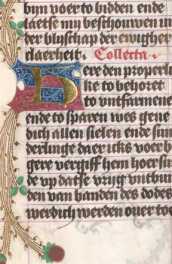 hym voer to bidden ende
laetste my beschouwen in
der blijscap der ewigher
claerheit. Collecta.
Here den properlic
ke to behoret
to untfarmene
ende to sparen wes gene
dich allen sielen ende sun
derlinge daer ick voer b
gere vergiff hem hoer sun
de up datse vrijg untbun
den van banden des dodes
werdich werden over to